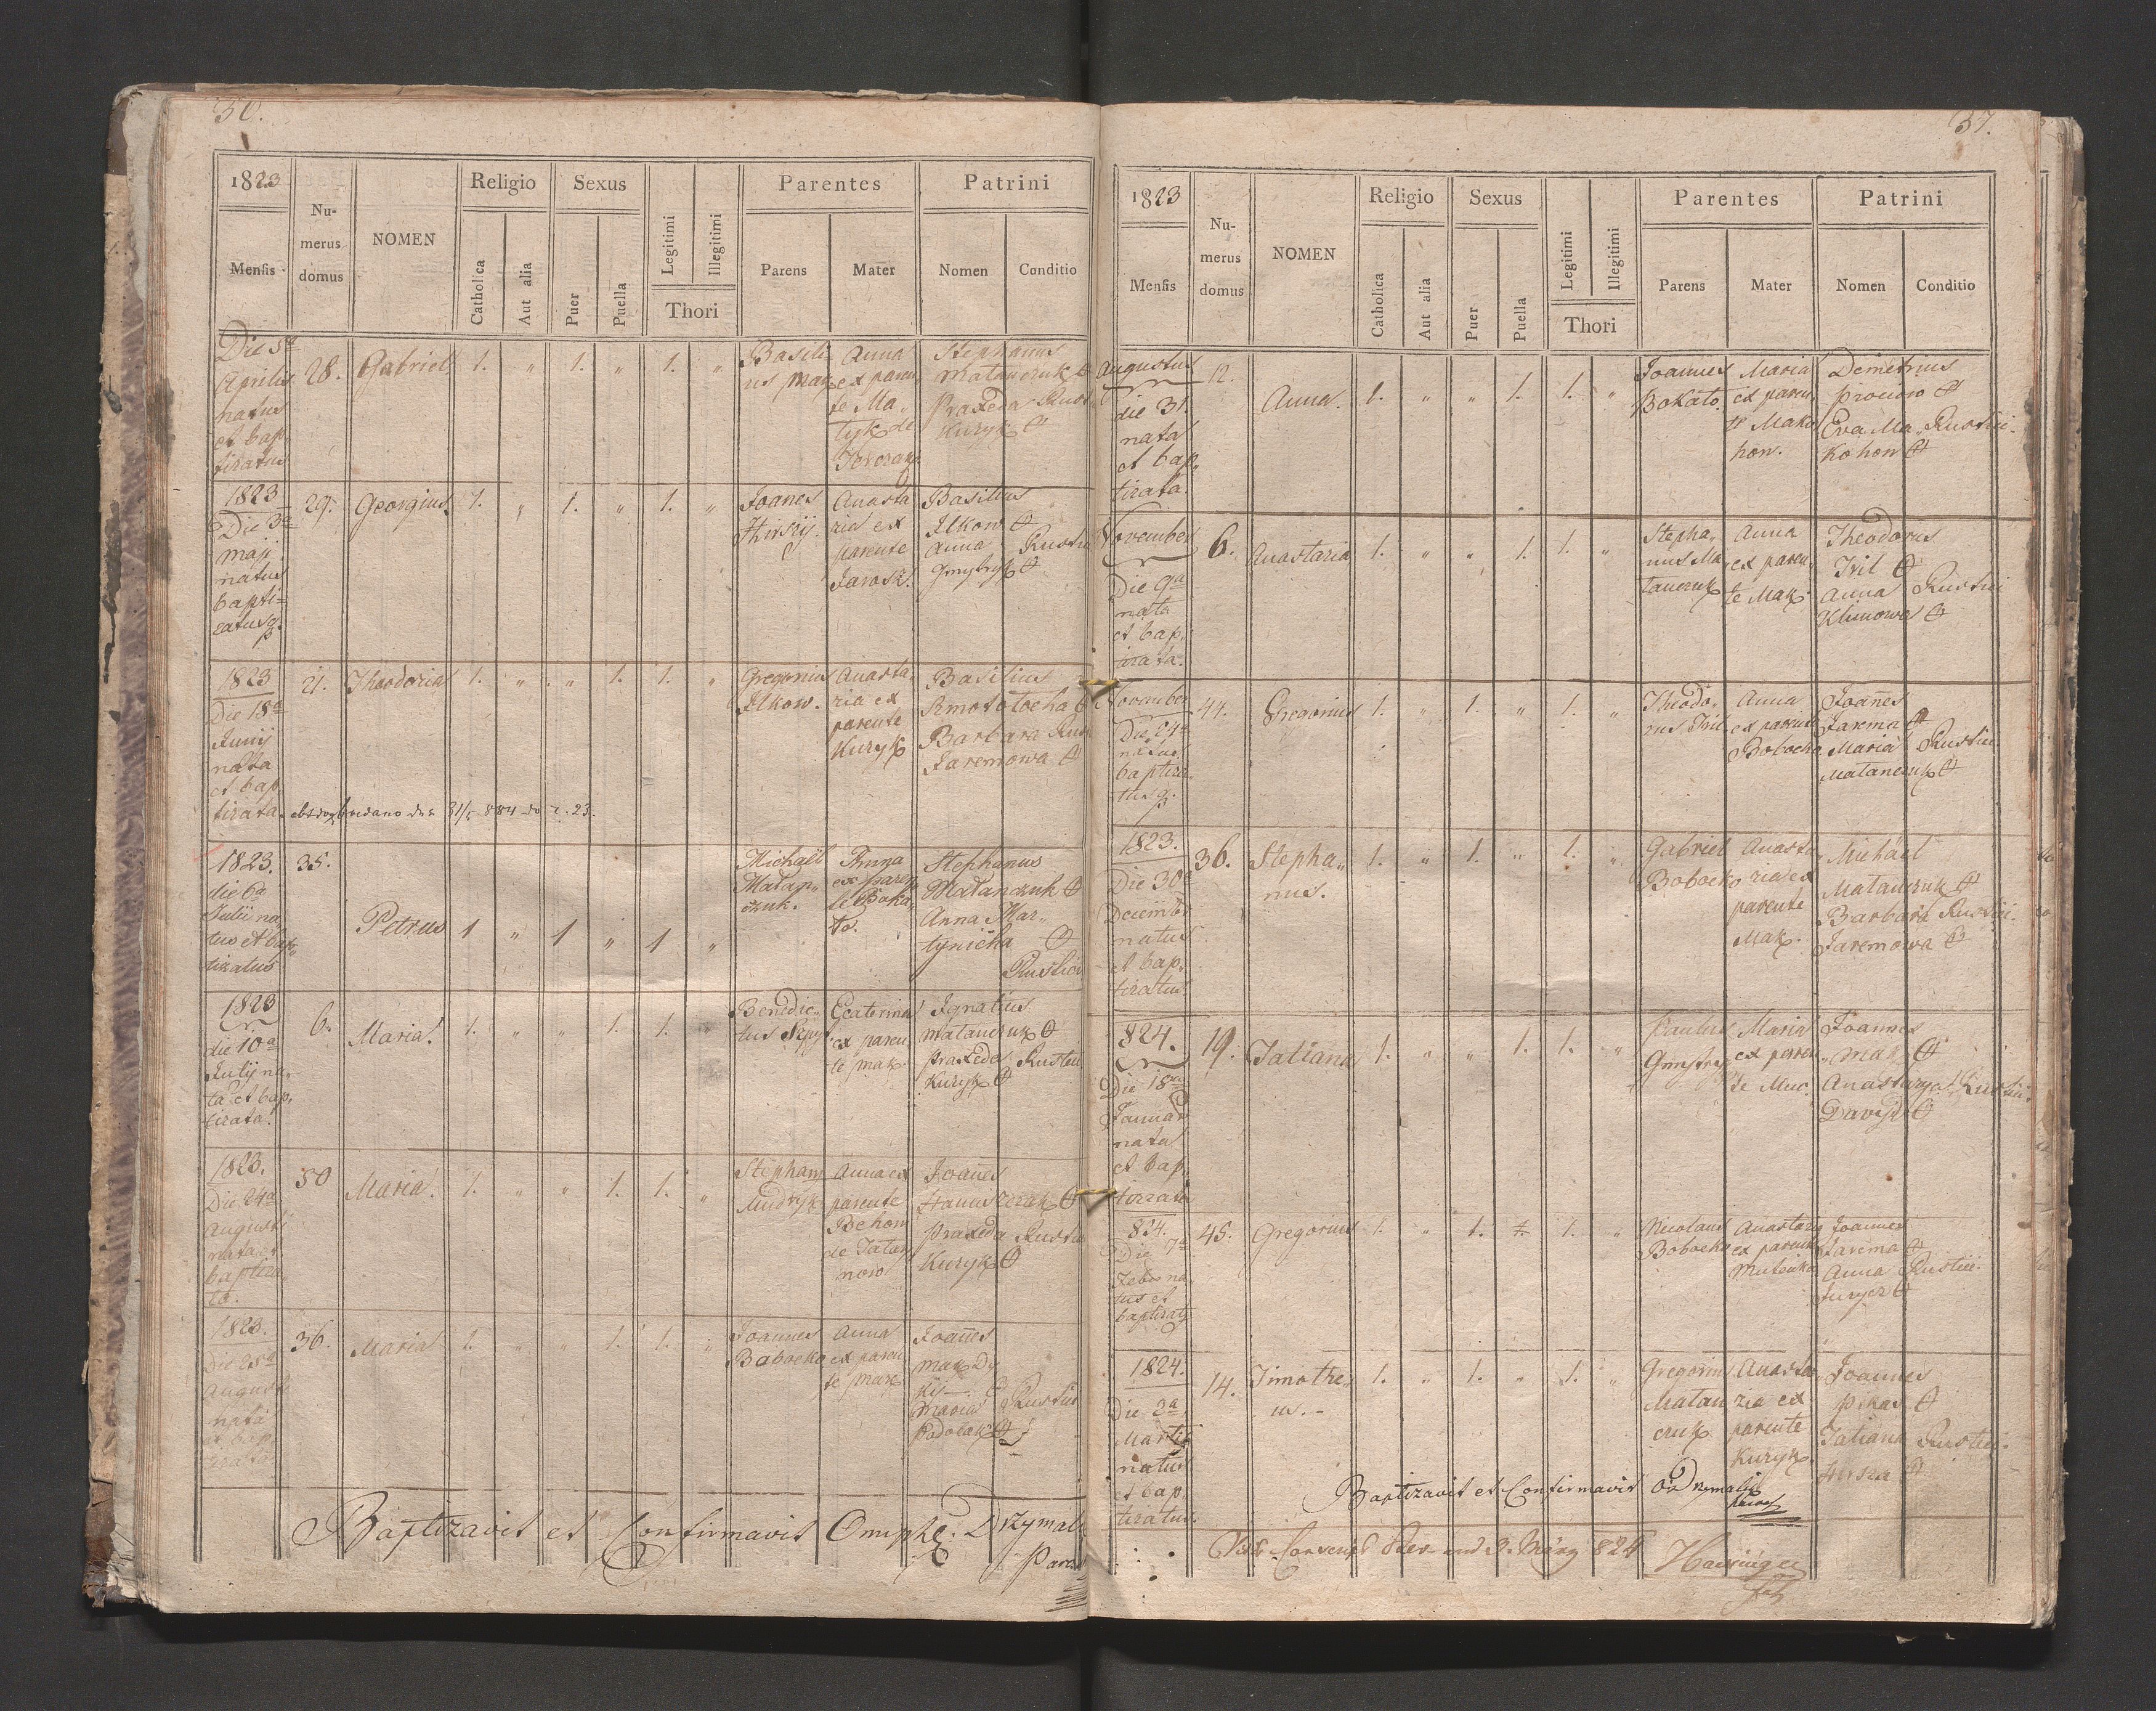 30.
1823
Mensis
Nu-
merus
domus
NOMEN
Religio
Catholica
Aut alia
Sexus
Puer
Puella
Legitimi
Illegitimi
Thori
Parentes
Parens
Mater
Patrini
Nomen
Conditio
Die 5a
Aprilis
natus
et bap
tizatus
28.
Gabriel
1.
"
1.
"
1.
"
Basili
us Mak
Anna
ex paren
te Ma,
tyk de
Stephanus
Matanczuk
Praxeda
Kuryk
1823
Die 3a
Maji
natus
bapti=
zatusq.
29.
Georgius
1.
"
1.
"
1.
"
Joanes
Hirszij.
Anasta
zia ex
parente
Jarosz.
Basilius
Ilkow
Anna
Gmytryk
1823
Die 18a
Junij
nata
et bap
tizata.
21.
Theodoria
1.
"
"
1.
1.
"
Gregorius
Ilkow.
Anasta,
zia ex
parente
Kuryk
Basilius
Barbara
Jaremowa
1823.
die 6a
Julii na
tus et bap,
tizatus
35.
Petrus
1
"
1
"
1
"
Michaël
Matan,,
czuk.
Anna
ex paren
te Boka,
to.
Stephanus
Matanczuk
Anna Mar,,
tynicha
Rustici
1823
die 10a
Julij na,
ta et bap,
tizata.
6.
Maria.
1.
"
"
1.
1.
"
Benedic,
tus
Ecaterina
ex paren
te Mak.
Ignatius
Matanczuk
Praxeda Rustici
Kuryk
1823.
Die 24a
Augusti
nata et
baptiza,
ta.
50
Maria.
1.
"
"
1.
1.
"
Stephan,
Mudryk
Anna ex
parente
Behom
de Tatar
now
Joanes
Praxeda Rustici
Kuryk
1823.
Die 25a
Augusti
nata
36.
Maria
1.
"
"
1.
1.
"
Joannes
Baboeko
Anna
ex paren
te Mak
Joanes
Mak Dy
Maria Rustici
Podolak
Baptizavit et Confirmavit Onuph. Drzymal
37.
1823
Mensis
Nu-
merus
domus
NOMEN
Religio
Catholica
Aut alia
Sexus
Puer
Puella
Legitimi
Illegitimi
Thori
Parentes
Parens
Mater
Patrini
Nomen
Conditio
Augustus
die 31.
nata
et bap,
tizata.
12.
Anna.
1.
"
"
1.
1.
"
Joannes
Bokato.
Maria
ex paren,
te Mako
how.
Demetrius
Eva Ma,, Rustici.
kohow
November
Die 9a
nata
et bap,
tizata.
6.
Anastazia
1.
"
"
1.
1.
"
Stepha,
nus Ma,
tanczuk
Anna
ex paren,
te Mak
Theodorus
Iril
Anna Rustici
Klimowa
November
Die 24a
natus
baptiza,
tusq.
44.
Gregorius
1.
"
1.
"
1.
"
Theodo,
rus Iril
Anna
ex parente
Boboeko
Joanes
Jarema
Maria Rustici
Matanczuk
1823.
Die 30a
Decembr
natus
et bap,
tizatus.
36.
Stepha,,
nus.
1.
"
1.
"
1.
"
Gabriel
Boboeko
Anasta
zia ex
parente
Mak.
Michäel
Matanczuk
Barbara Rustici.
Jaremowa
824.
Die 18va
Januar
nata
et bap
tizata
19.
Tatiana
1.
"
"
1.
1.
"
Paulus
Gmytryk
Maria
ex paren
te Muc.
Joannes
Mak
Anastazya Rustici.
824.
Die 7a
Febr na
tus et
baptizatq
45.
Gregorius
1.
"
1.
1.
"
Nicolaus
Boboeko
Anastazia
ex parente
Joannes
Jarema
Anna Rustici.
1824.
Die 2a
Martij
natus
et bap
tizatus.
14.
Timothe,,
us.
1.
"
1.
"
1.
"
Gregorius
Matan
czuk
Anasta
zia ex
parente
Kuryk.
Joannes
Pikas
Tatiana Rustici.
Baptizavit et Confirmavit